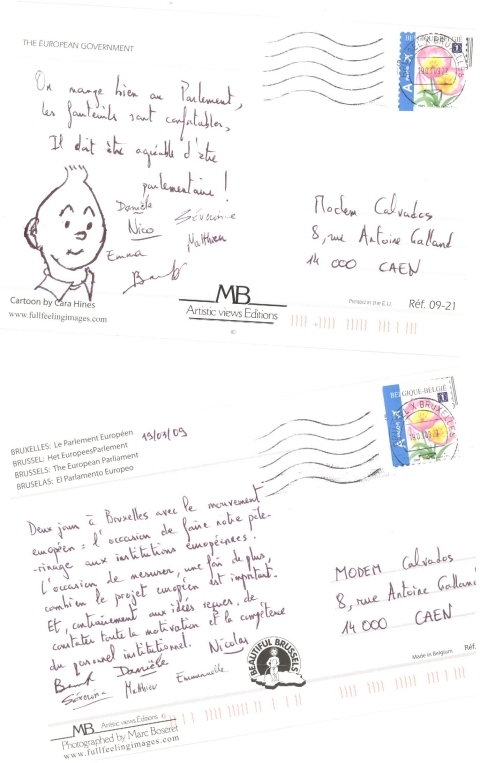 THE EUROPEAN GOVERNMENT
BELGIQUE-BELGIË
A PRIOR
1
On mange bien au Parlement,
les fauteuils sont confortables,
Il doit être agréable d'être
parlementaire !
Danièle
Nico Séverine
Emma Matthieu
Modem Calvados
8, rue Antoine Galland
14 000 CAEN
Cartoon by Cara Hines
www.fullfeelingimages.com
MB
Artistic views Editions
Printed in the E.U.
Réf. 09-21
BELGIQUE-BELGIË
A PRIOR
1
BRUXELLES
BRUXELLES: Le Parlement Européen
BRUSSEL: Het EuropeesParlement
BRUSSELS: The European Parliament
BRUSELAS: El Parlamento Europeo
19/03/09
Deux jours à Bruxelles avec le mouvement
européen : l'occasion de faire notre péle-
-rinage aux institutions européennes.
L'occasion de mesurer, une fois de plus,
combien le projet européen est important.
Et, contrairement aux idées reçues, de
constater toute la motivation et la compétence
du personnel institutionnel.
Nicolas
Danièle
Séverine Matthieu Emmanuelle
MODEM Calvados
8, rue Antoine Galland
14 000 CAEN
BEAUTIFUL BRUSSELS
Made in Belgium
Réf.
MB Artistic views Editions ©
Photographed by Marc Boseret
www.fullfeelingimages.com